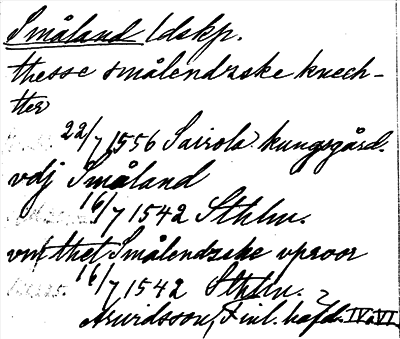 Småland ldskp.
thesse smålendzske knech-
ter
22/7 1556 Sairola kungsgård.
vdj Småland
16/7 1542 Sthlm.
vm thet Smålendzske vproor
16/7 1542 Sthlm.
Arwidsson, Finl. häfd. IV. VI.